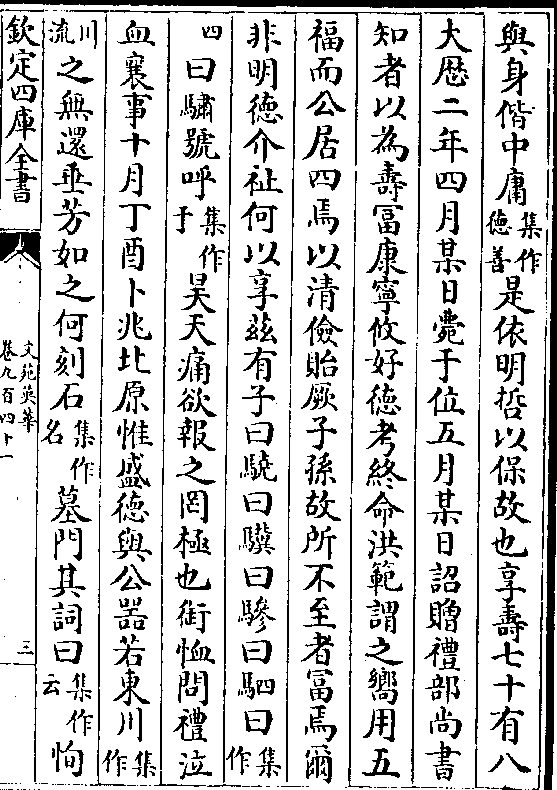 與身偕中庸集作德善是依明哲以保故也享壽七十有八
大歴二年四月某日薨于位五月某日詔贈禮部尚書
知者以為壽富康寧攸好德考終命洪範謂之嚮用五
福而公居四焉以清儉貽厥子孫故所不至者富焉爾
非明德介祉何以享兹有子曰驍曰驥曰驂曰駟曰集作
四曰驌號呼集作于昊天痛欲報之罔極也銜恤問禮泣
血襄事十月丁酉卜兆北原惟盛德與公器若東川集作
川流之無還垂芳如之何刻石集作名墓門其詞曰集作云恂
欽定四庫全書
文苑英華
卷九百四十一
三